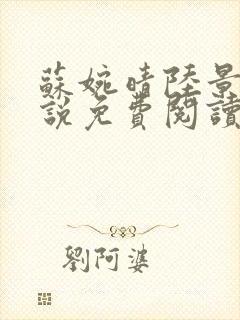 蘇婉晴陸景
說免費閱讀
劉阿婆